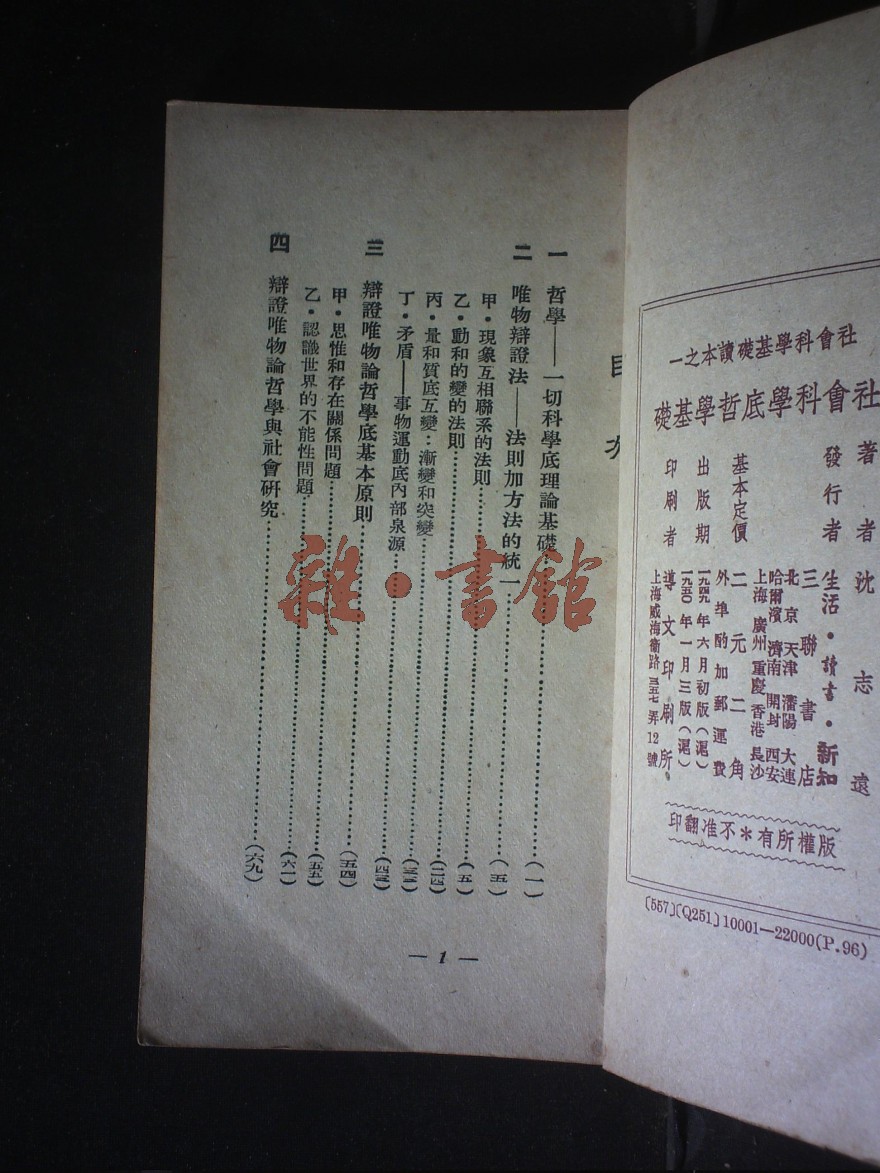 社會科學基礎讀本之一
社會科學底哲學基礎
著者 沈志遠
發行者 生活·讀書·新知
三聯書店
北京 天津 瀋陽 大連
哈爾濱 濟南 開封 西安
上海 廣州 重慶 香港 長沙
基本定價 二元二角
外埠酌加郵運費
出版期 一九四九年六月初版(滬)
一九五〇年一月三版(滬)
印刷者 導文印刷所
上海威海衛路三五七弄12號
版權所有*不准翻印
〔557〕〔Q251〕10001—22000(P.96)
目次
一 哲學——一切科學底理論基礎……(一)
二 唯物辯證法——法則加方法的統一……(五)
甲·現象互相聯系的法則……(五)
乙·動和的變的法則……(二四)
丙·量和質底互變:漸變和突變……(三三)
丁·矛盾——事物運動底內部泉源……(四三)
三 辯證唯物論哲學底基本原則……(五四)
甲·思惟和存在關係問題……(五五)
乙·認識世界的不能性問題……(六一)
四 辯證唯物論哲學與社會研究……(六九)
— 1 —
雜·書館